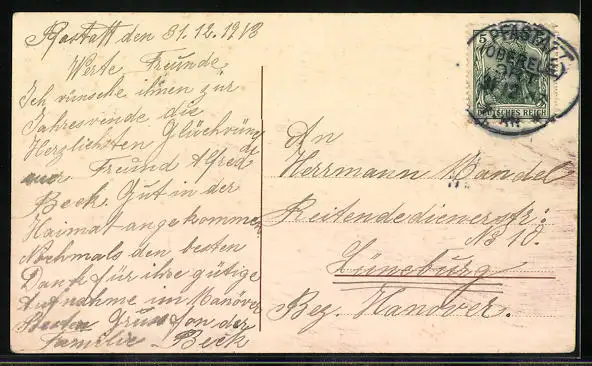 Rastatt den 31.12.1913
Werte Freunde,
Ich wünsche ihnen zur
Jahreswende die
Herzlichsten Glückwün
Freund Alfred
Beck. Gut in der
Haimat angekommen.
Nochmals den besten
Dank für ihre gütige
Aufnahme im Manöver
Besten Gruss fon der
Familie - Beck
5
PFASTATT
(OBERELS)
DEUTSCHES REICH
An
Herrmann Mandel
Reitendedienerstr:
No 10.
Lüneburg
Bez. Hanover.